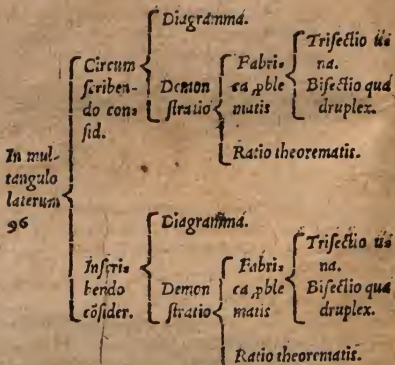 In mul-
tangulo
laterum
96
Circum
ſcriben-
do conſ
ſid.
Diagramma.
Demon
ſtratio
Fabri-
ca ꝓble
matis
Triſectio ūi
na.
Biſectio qua
druplex.
Ratio theorematis.
Inſcri-
bendo
cōſider.
Diagramma.
Demon
ſtratio
Fabri-
ca ꝓble
matis
Triſectio ūi
na.
Biſectio qua
druplex.
Ratio theorematis.